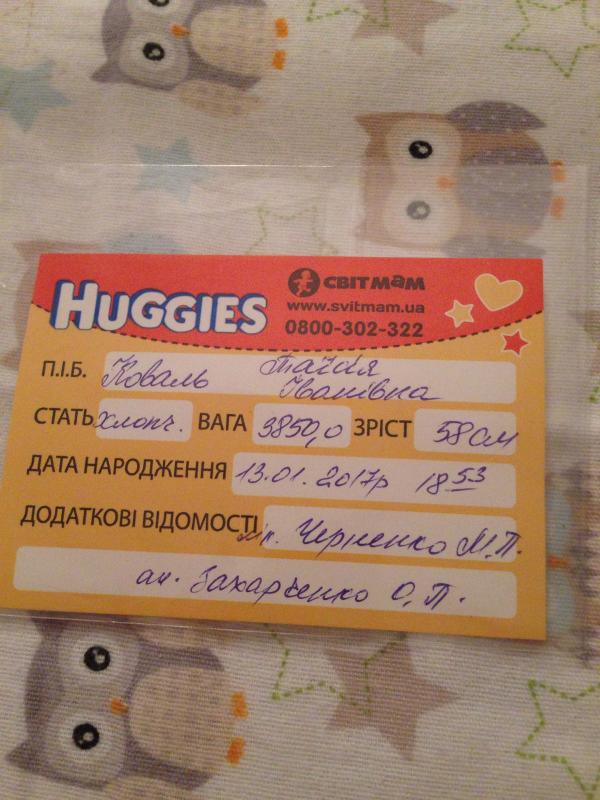 HUGGIES
СВІТМАМ
www.svitmam.ua
0800-302-322
П.І.Б. Коваль Таїсія
Іванівна
СТАТЬ хлопч. ВАГА 3850,0 ЗРІСТ 58 см
ДАТА НАРОДЖЕННЯ 13.01.2017р 18 53
ДОДАТКОВІ ВІДОМОСТІ Черненко М.П.
ак. Захарченко О.П.